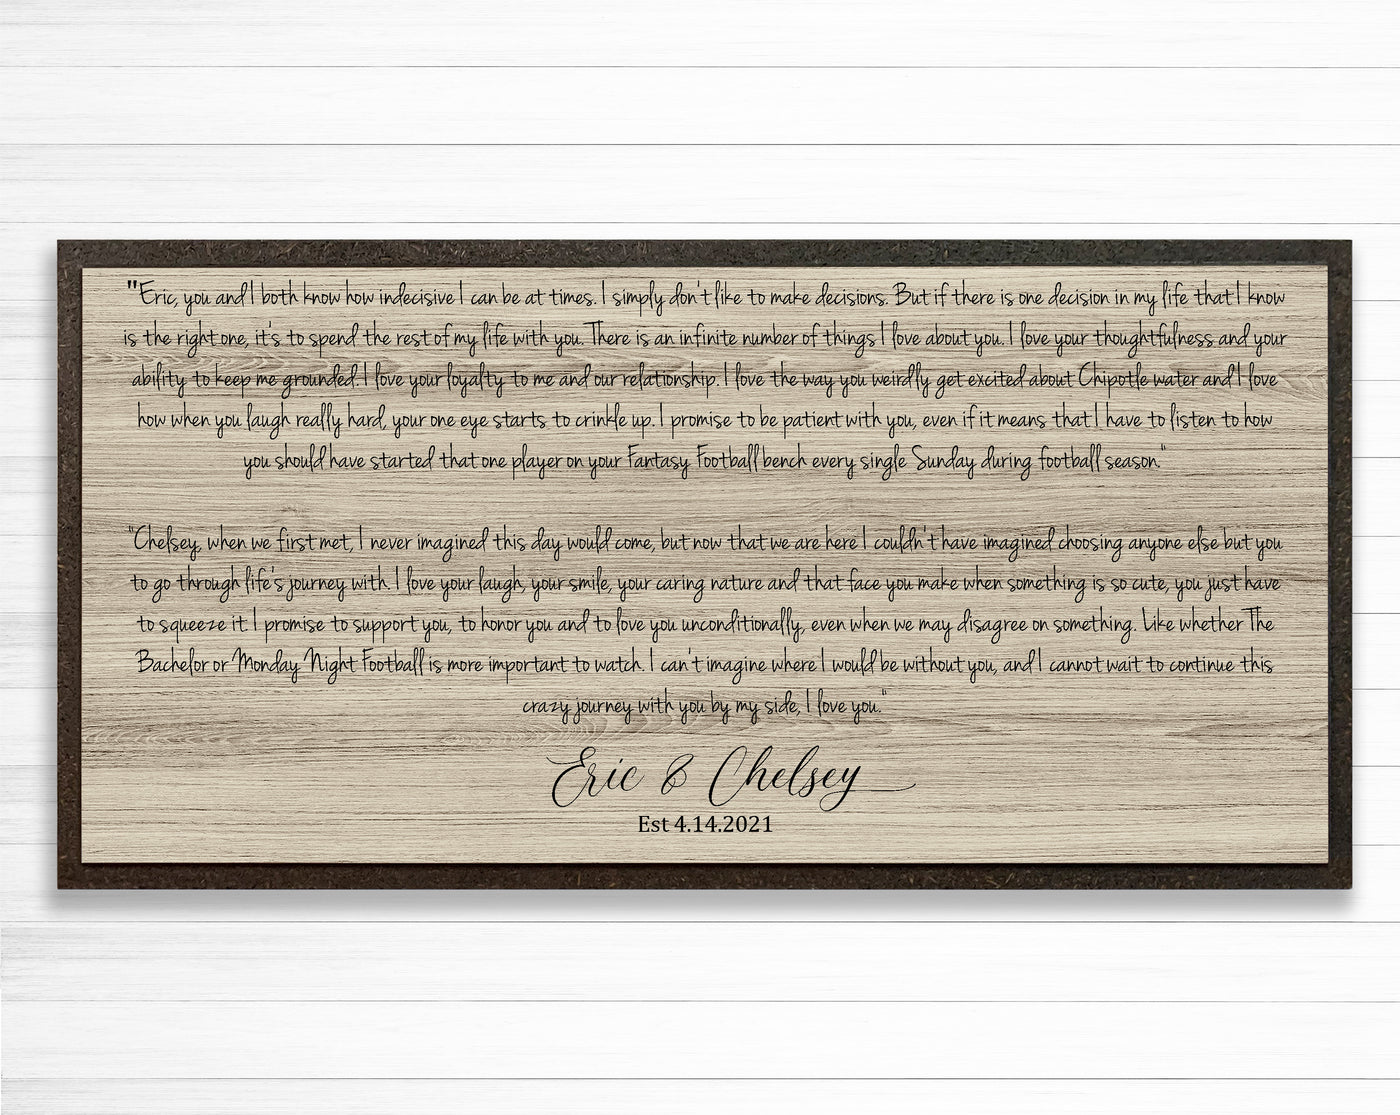 "Eric, you and I both know how indecisive I can be at times. I simply don't like to make decisions. But if there is one decision in my life that I know
is the right one, it's to spend the rest of my life with you. There is an infinite number of things I love about you. I love your thoughtfulness and your
ability to keep me grounded. I love your loyalty to me and our relationship. I love the way you weirdly get excited about Chipotle water and I love
how when you laugh really hard, your one eye starts to crinkle up. I promise to be patient with you, even if it means that I have to listen to how
you should have started that one player on your Fantasy Football bench every single Sunday during football season."
"Chelsey, when we first met, I never imagined this day would come, but now that we are here I couldn't have imagined choosing anyone else but you
to go through life's journey with. I love your laugh, your smile, your caring nature and that face you make when something is so cute, you just have
to squeeze it. I promise to support you, to honor you and to love you unconditionally, even when we may disagree on something. Like whether The
Bachelor or Monday Night Football is more important to watch. I can't imagine where I would be without you, and I cannot wait to continue this
crazy journey with you by my side, I love you."
Eric & Chelsey
Est 4.14.2021